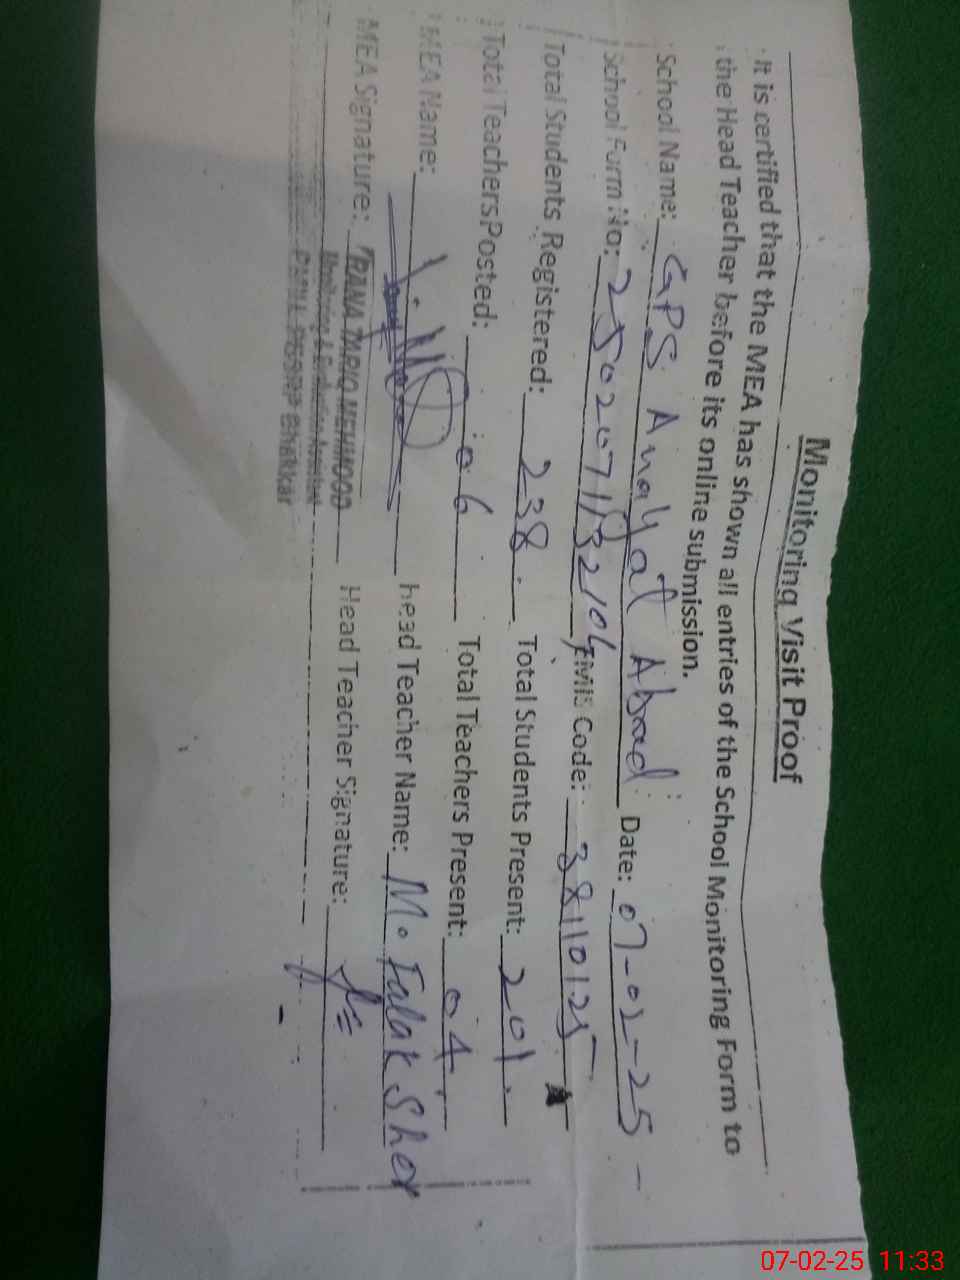 Monitoring Visit Proof
It is certified that the MEA has shown all entries of the School Monitoring Form to
the Head Teacher before its online submission.
School Name: GPS Anayat Abad Date: 07-02-25
School Form No: EMIS Code: 38110125
Total Students Registered: 238 Total Students Present: 201
Total Teachers Posted: 06 Total Teachers Present: 04
MEA Name: head Teacher Name: M. Falak Sher
MEA Signature: RANA TARIQ MEHMOOD Head Teacher Signature:
Bhakkar
07-02-25 11:33